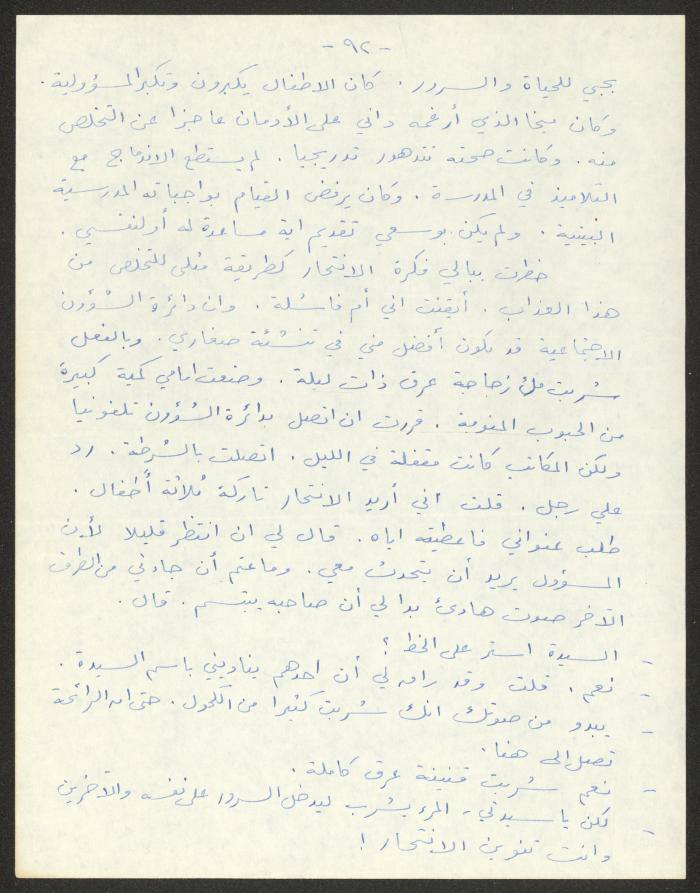 - ٩٢ -
بحبي للحياة والسرور. كان الاطفال يكبرون وتكبر المسؤولية.
وكان ميخا الذي أرغمه داني على الأدمان عاجزا عن التخلص
منه. وكانت صحته تتدهور تدريجيا. لم يستطع الاندماج مع
التلاميذ في المدرسة. وكان يرفض القيام بواجباته المدرسية
البيتية. ولم يكن بوسعي تقديم اية مساعدة له أو لنفسي.
خطرت ببالي فكرة الانتحار كطريقة مثلى للتخلص من
هذا العذاب. أيقنت اني أم فاشلة. وان دائرة الشؤون
الاجتماعية قد تكون أفضل مني في تنشئة صغاري. وبالفعل
شربت ملئ زجاجة عرق ذات ليلة. وضعت امامي كمية كبيرة
من الحبوب المنومة. قررت ان اتصل بدائرة الشؤون تلفونيا
ولكن المكاتب كانت مقفلة في الليل. اتصلت بالشرطة. رد
علي رجل. قلت اني أريد الانتحار تاركة ثلاثة أطفال.
طلب عنواني فاعطيته اياه. قال لي ان انتظر قليلا لأن
المسؤول يريد أن يتحدث معي. وما عتم أن جاءني من الطرف
الآخر صوت هادئ بدا لي أن صاحبه يبتسم. قال.
- السيدة استر على الخط؟
- نعم. قلت وقد راق لي أن احدهم يناديني باسم السيدة.
- يبدو من صوتك انك شربت كثيرا من الكحول. حتى ان الرائحة
تصل الى هنا.
- نعم شربت قنينة عرق كاملة.
- لكن يا سيدتي، المرء يشرب ليدخل السرور على نفسه والآخرين
وانت تنوين الانتحار!